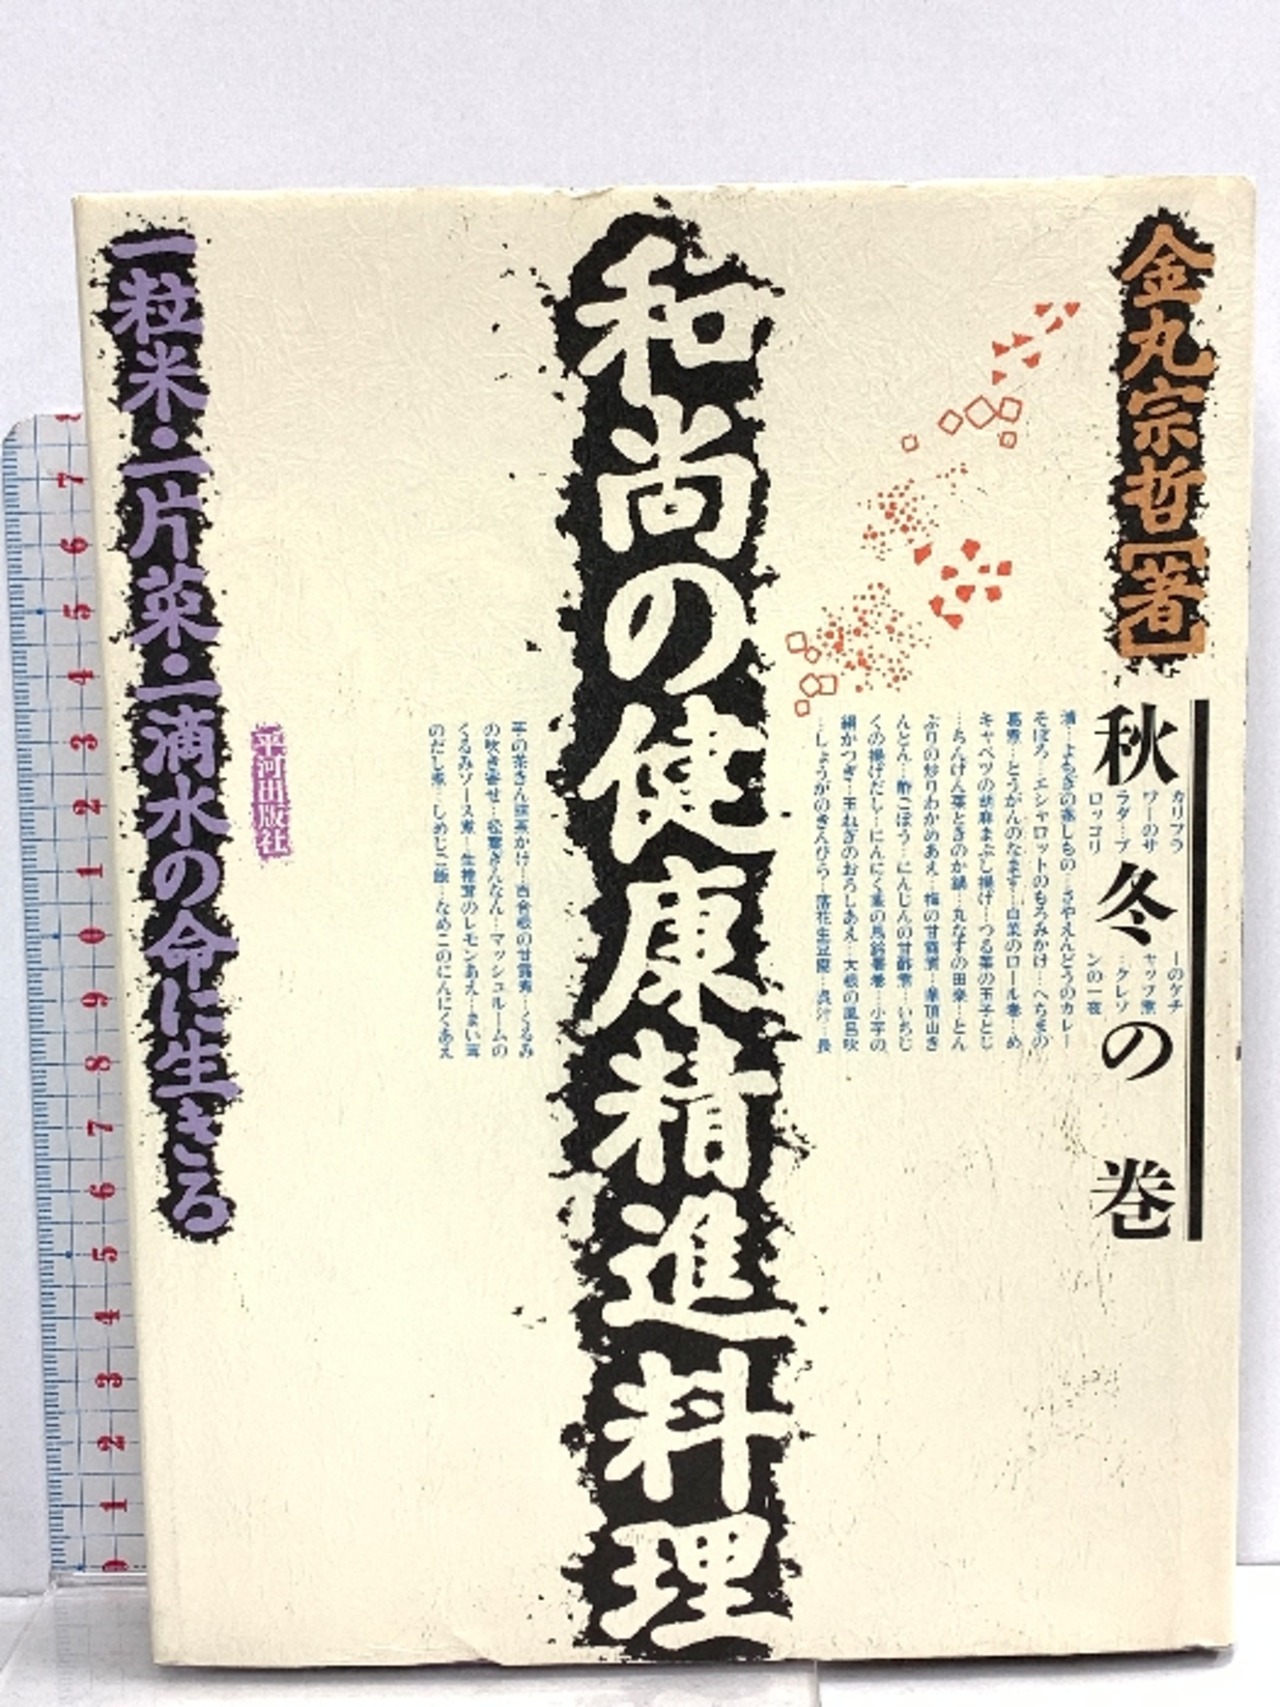 金丸宗哲【著】
秋冬の巻
カリフラ
ワーのサ
ラダ…ブ
ロッコリ
ーのケチ
ャップ煮
…クレソ
ンの一夜
漬…よもぎの蒸しもの…さやえんどうのカレー
そぼろ…エシャロットのもろみかけ…へちまの
葛煮…とうがんのなます…白菜のロール巻…め
キャベツの胡麻まぶし揚げ…つる菜の玉子とじ
…ちんげん菜ときのか鍋…丸なすの田楽…とん
ぶりの炒りわかめあえ…梅の甘露煮…薬頂山き
んとん…酢ごぼう…にんじんの甘酢煮…いちじ
くの揚げだし…にんにく葉の馬鈴薯巻…小芋の
絹かつぎ…玉ねぎのおろしあえ…大根の風呂吹
…しょうがのきんぴら…落花生豆腐…呉汁…長
芋の茶きん抹茶かけ…百合根の甘露煮…くるみ
の吹き寄せ…松葉ぎんなん…マッシュルームの
くるみソース煮…生椎茸のレモンあえ…まい茸
のだし煮…しめじご飯…なめこのにんにくあえ
和尚の健康精進料理
平河出版社
一粒米・一片菜・一滴水の命に生きる
7
6
5
4
3
2
1
0
9
8
7
6
5
4
3
2
1
0